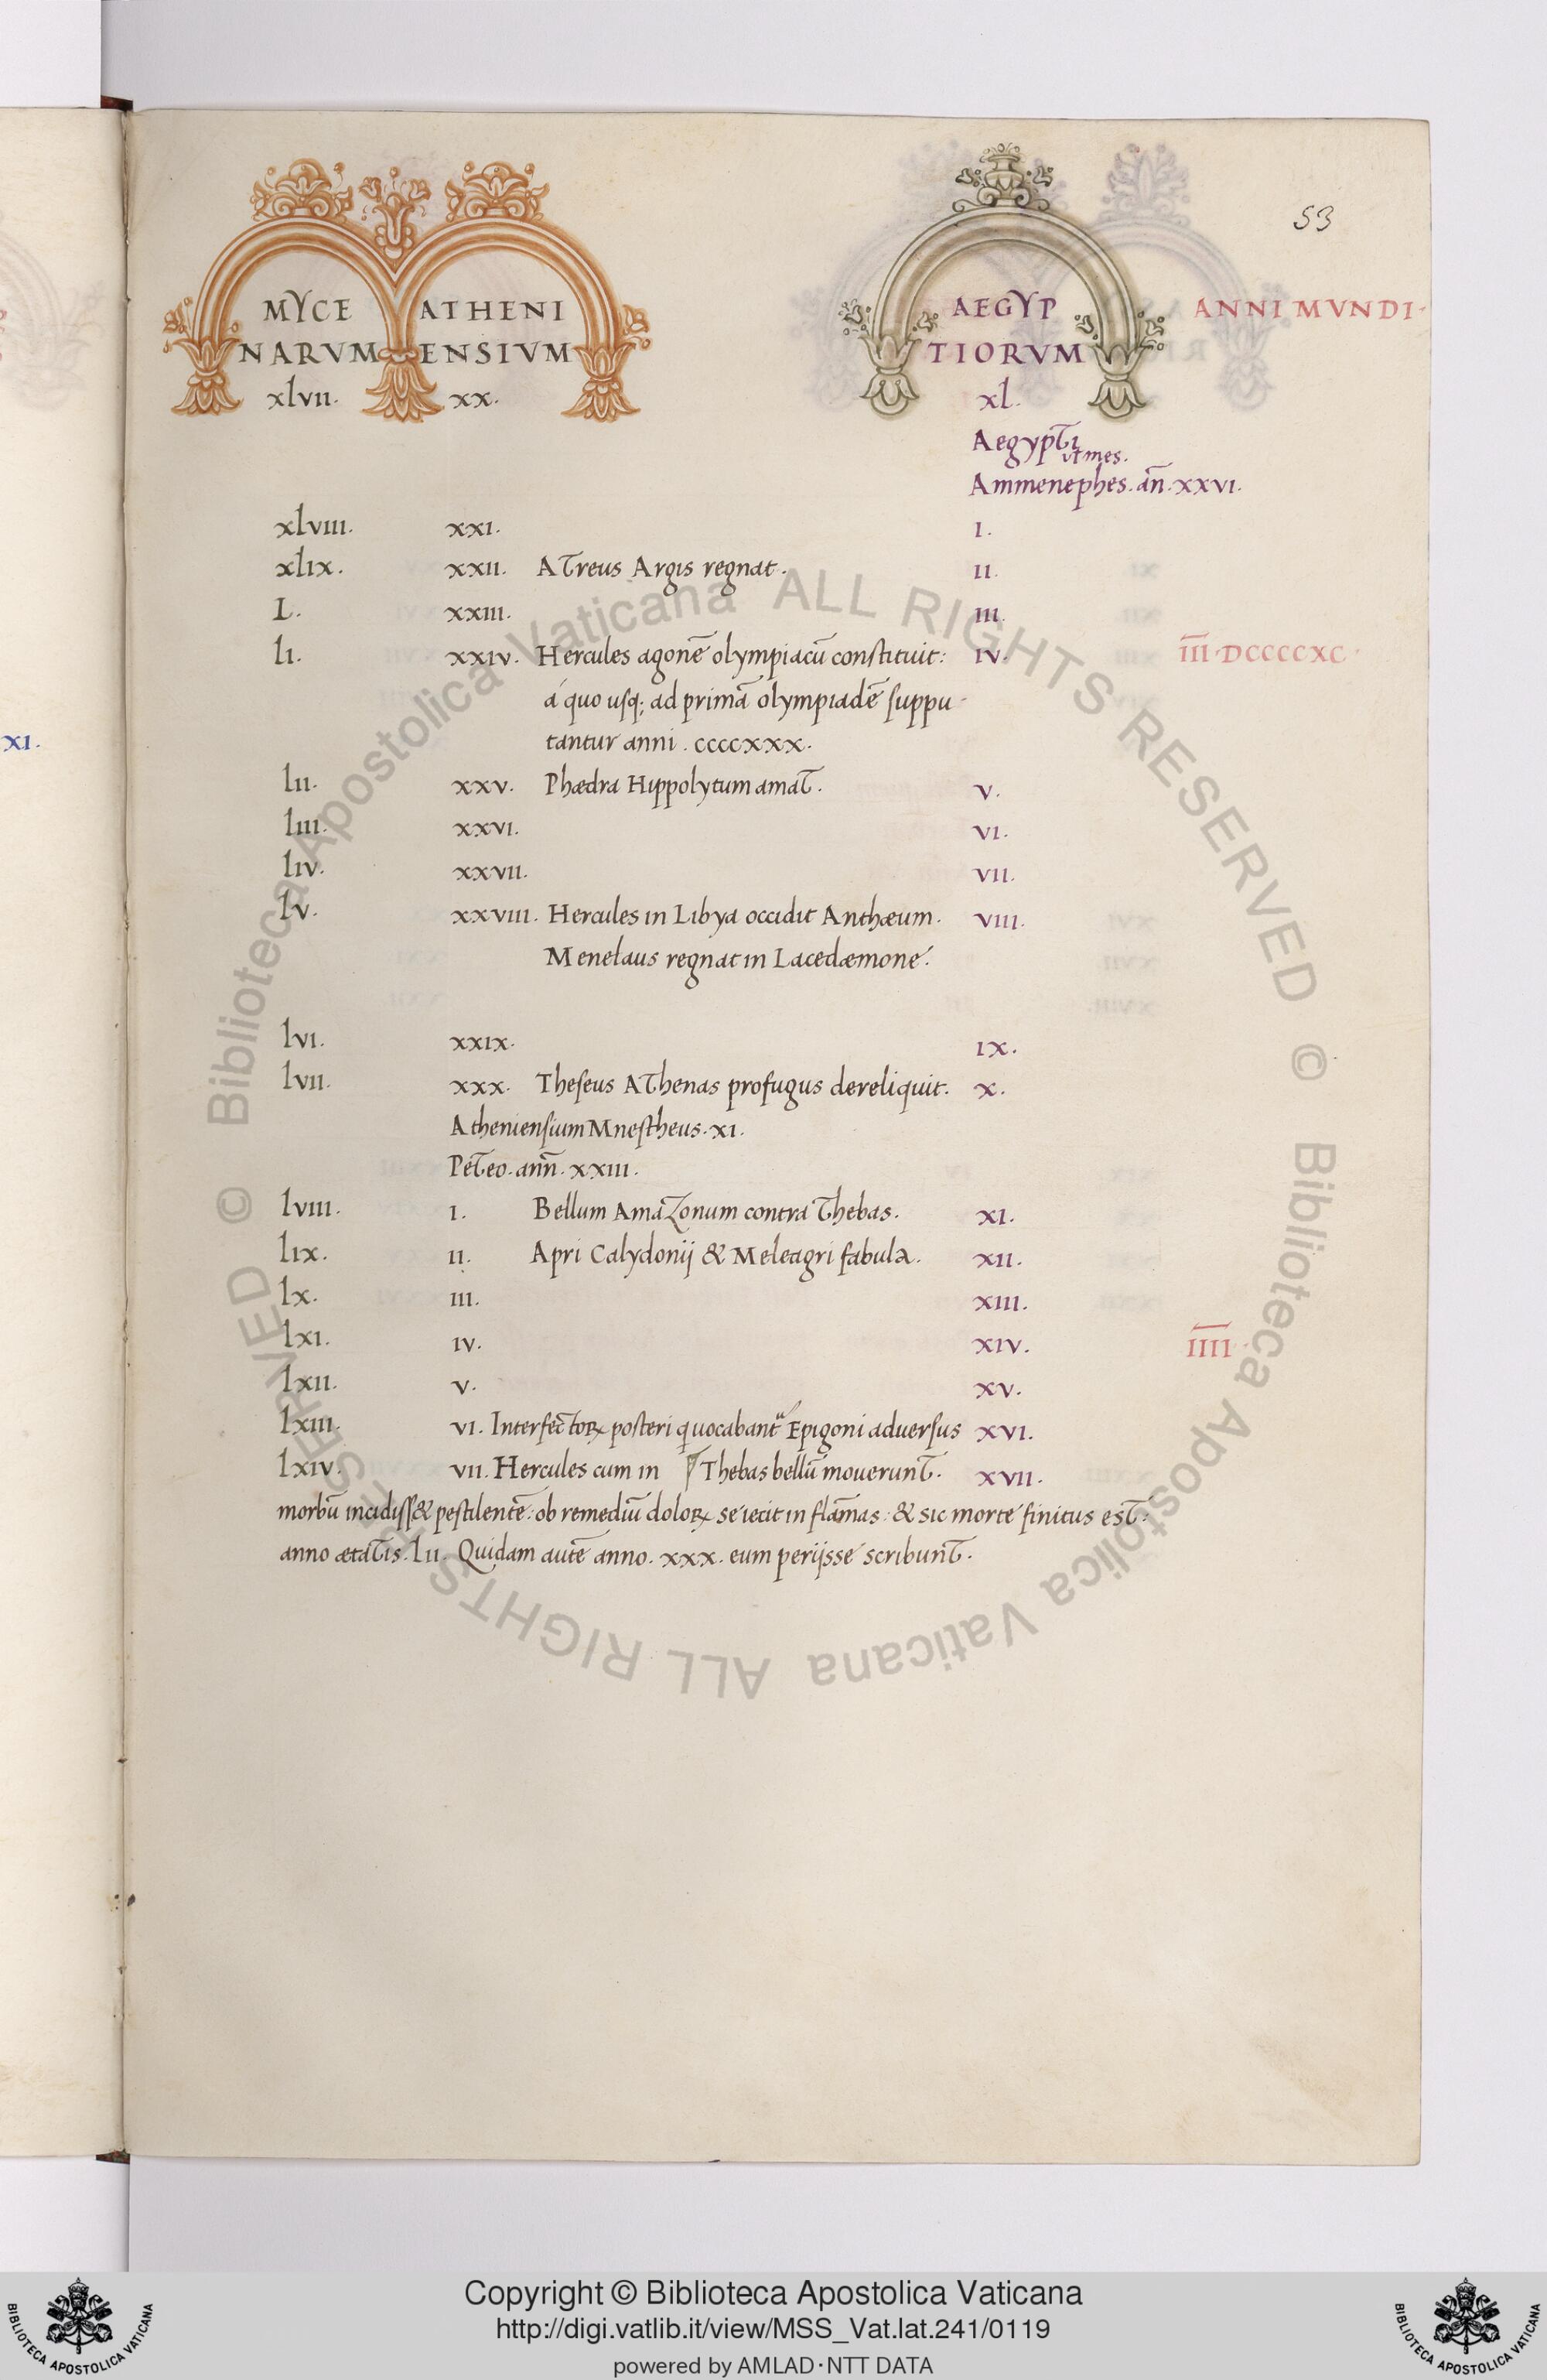 53
MYCE ATHENI AEGYP ANNI MVNDI·
NARVM ENSIVM TIORVM
xlvii. xx. xl.
Aegypti
vt mes.
Ammenephes. añ. xxvi.
xlviii. xxi. I.
xlix. xxii. Atreus Argis regnat. II.
L. xxiii. III.
li. xxiv. Hercules agonē olympiacū constituit: IV. I̅I̅I̅·DCCCCXC·
á quo usq; ad primā olympiadē suppu-
tantur anni. ccccxxx.
XI.
lii. xxv. Phædra Hippolytum amat. V.
liii. xxvi. VI.
liv. xxvii. VII.
lv. xxviii. Hercules in Libya occidit Anthæum. VIII.
Menelaus regnat in Lacedæmone.
lvi. xxix. IX.
lvii. xxx. Theseus Athenas profugus dereliquit. X.
Atheniensium Mnestheus. xi.
Peteo. anñ. xxiii.
lviii. I. Bellum Amazonum contra Thebas. XI.
lix. II. Apri Calydonij & Meleagri fabula. XII.
lx. III. XIII.
lxi. IV. XIV. I̅I̅I̅I̅·
lxii. V. XV.
lxiii. VI. Interfectoꝝ posteri qͥ uocabantᷣ Epigoni aduersus XVI.
lxiv. VII. Hercules cum in Thebas bellū mouerunt. XVII.
morbū incidiss& pestilentē: ob remediū doloꝝ se iecit in flāmas: & sic morte finitus est:
anno ætatis. lii. Quidam autē anno. xxx. eum perijsse scribunt.
© Biblioteca Apostolica Vaticana ALL RIGHTS RESERVED © Biblioteca Apostolica Vaticana ALL RIGHTS RESERVED
Copyright © Biblioteca Apostolica Vaticana
http://digi.vatlib.it/view/MSS_Vat.lat.241/0119
powered by AMLAD·NTT DATA
BIBLIOTECA APOSTOLICA VATICANA
BIBLIOTECA APOSTOLICA VATICANA